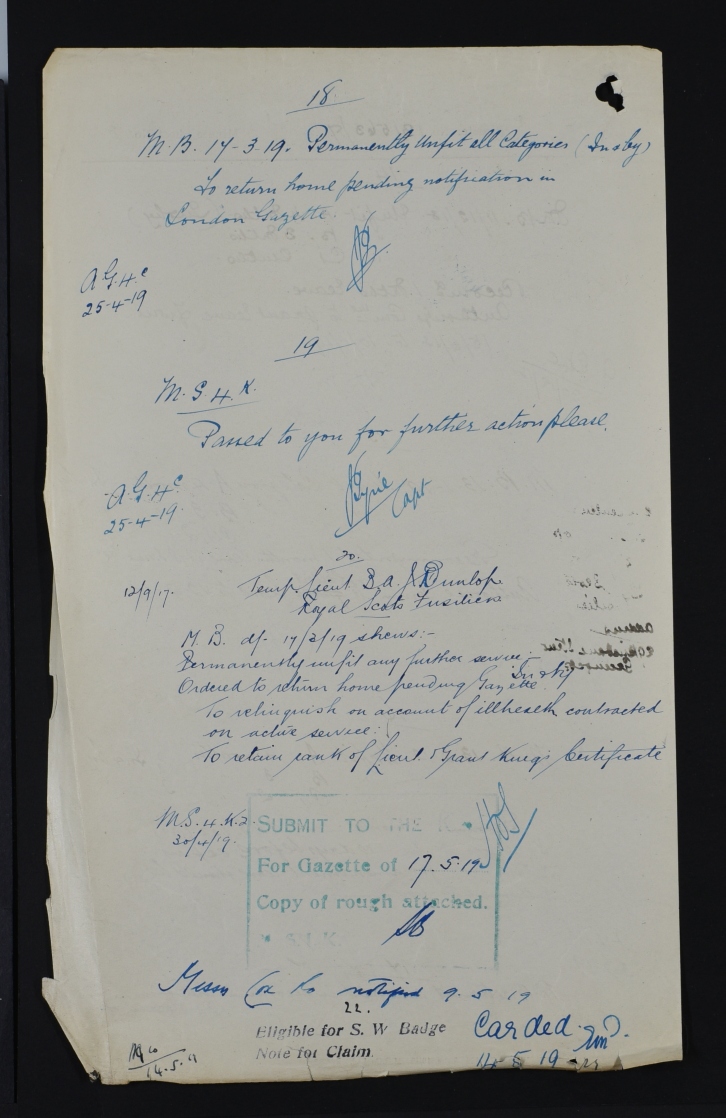 18
M.B. 17-3-19. Permanently Unfit all Categories (
To return home pending notification in
London Gazette.
A.G.4.c
25-4-19
19
M.S.4.K.
Passed to you for further action please.
A.G.4.c
25-4-19
Capt
20.
12/9/17.
Temp. Lieut B.A. Dunlop.
Royal Scots Fusiliers
M.B. df. 17/3/19 shews:-
Permanently unfit any further service.
Ordered to return home pending Gazette.
To relinquish on account of illhealth contracted
on active service.
To retain rank of Lieut. & Grant King's Certificate
M.S.4.K.2.
30/4/19.
SUBMIT TO THE
For Gazette of 17.5.19
Copy of rough attached.
Messrs Cox & Co notified 9.5.19
22.
Eligible for S. W Badge
Note for Claim.
Carded.
14.5.19
14.5.19